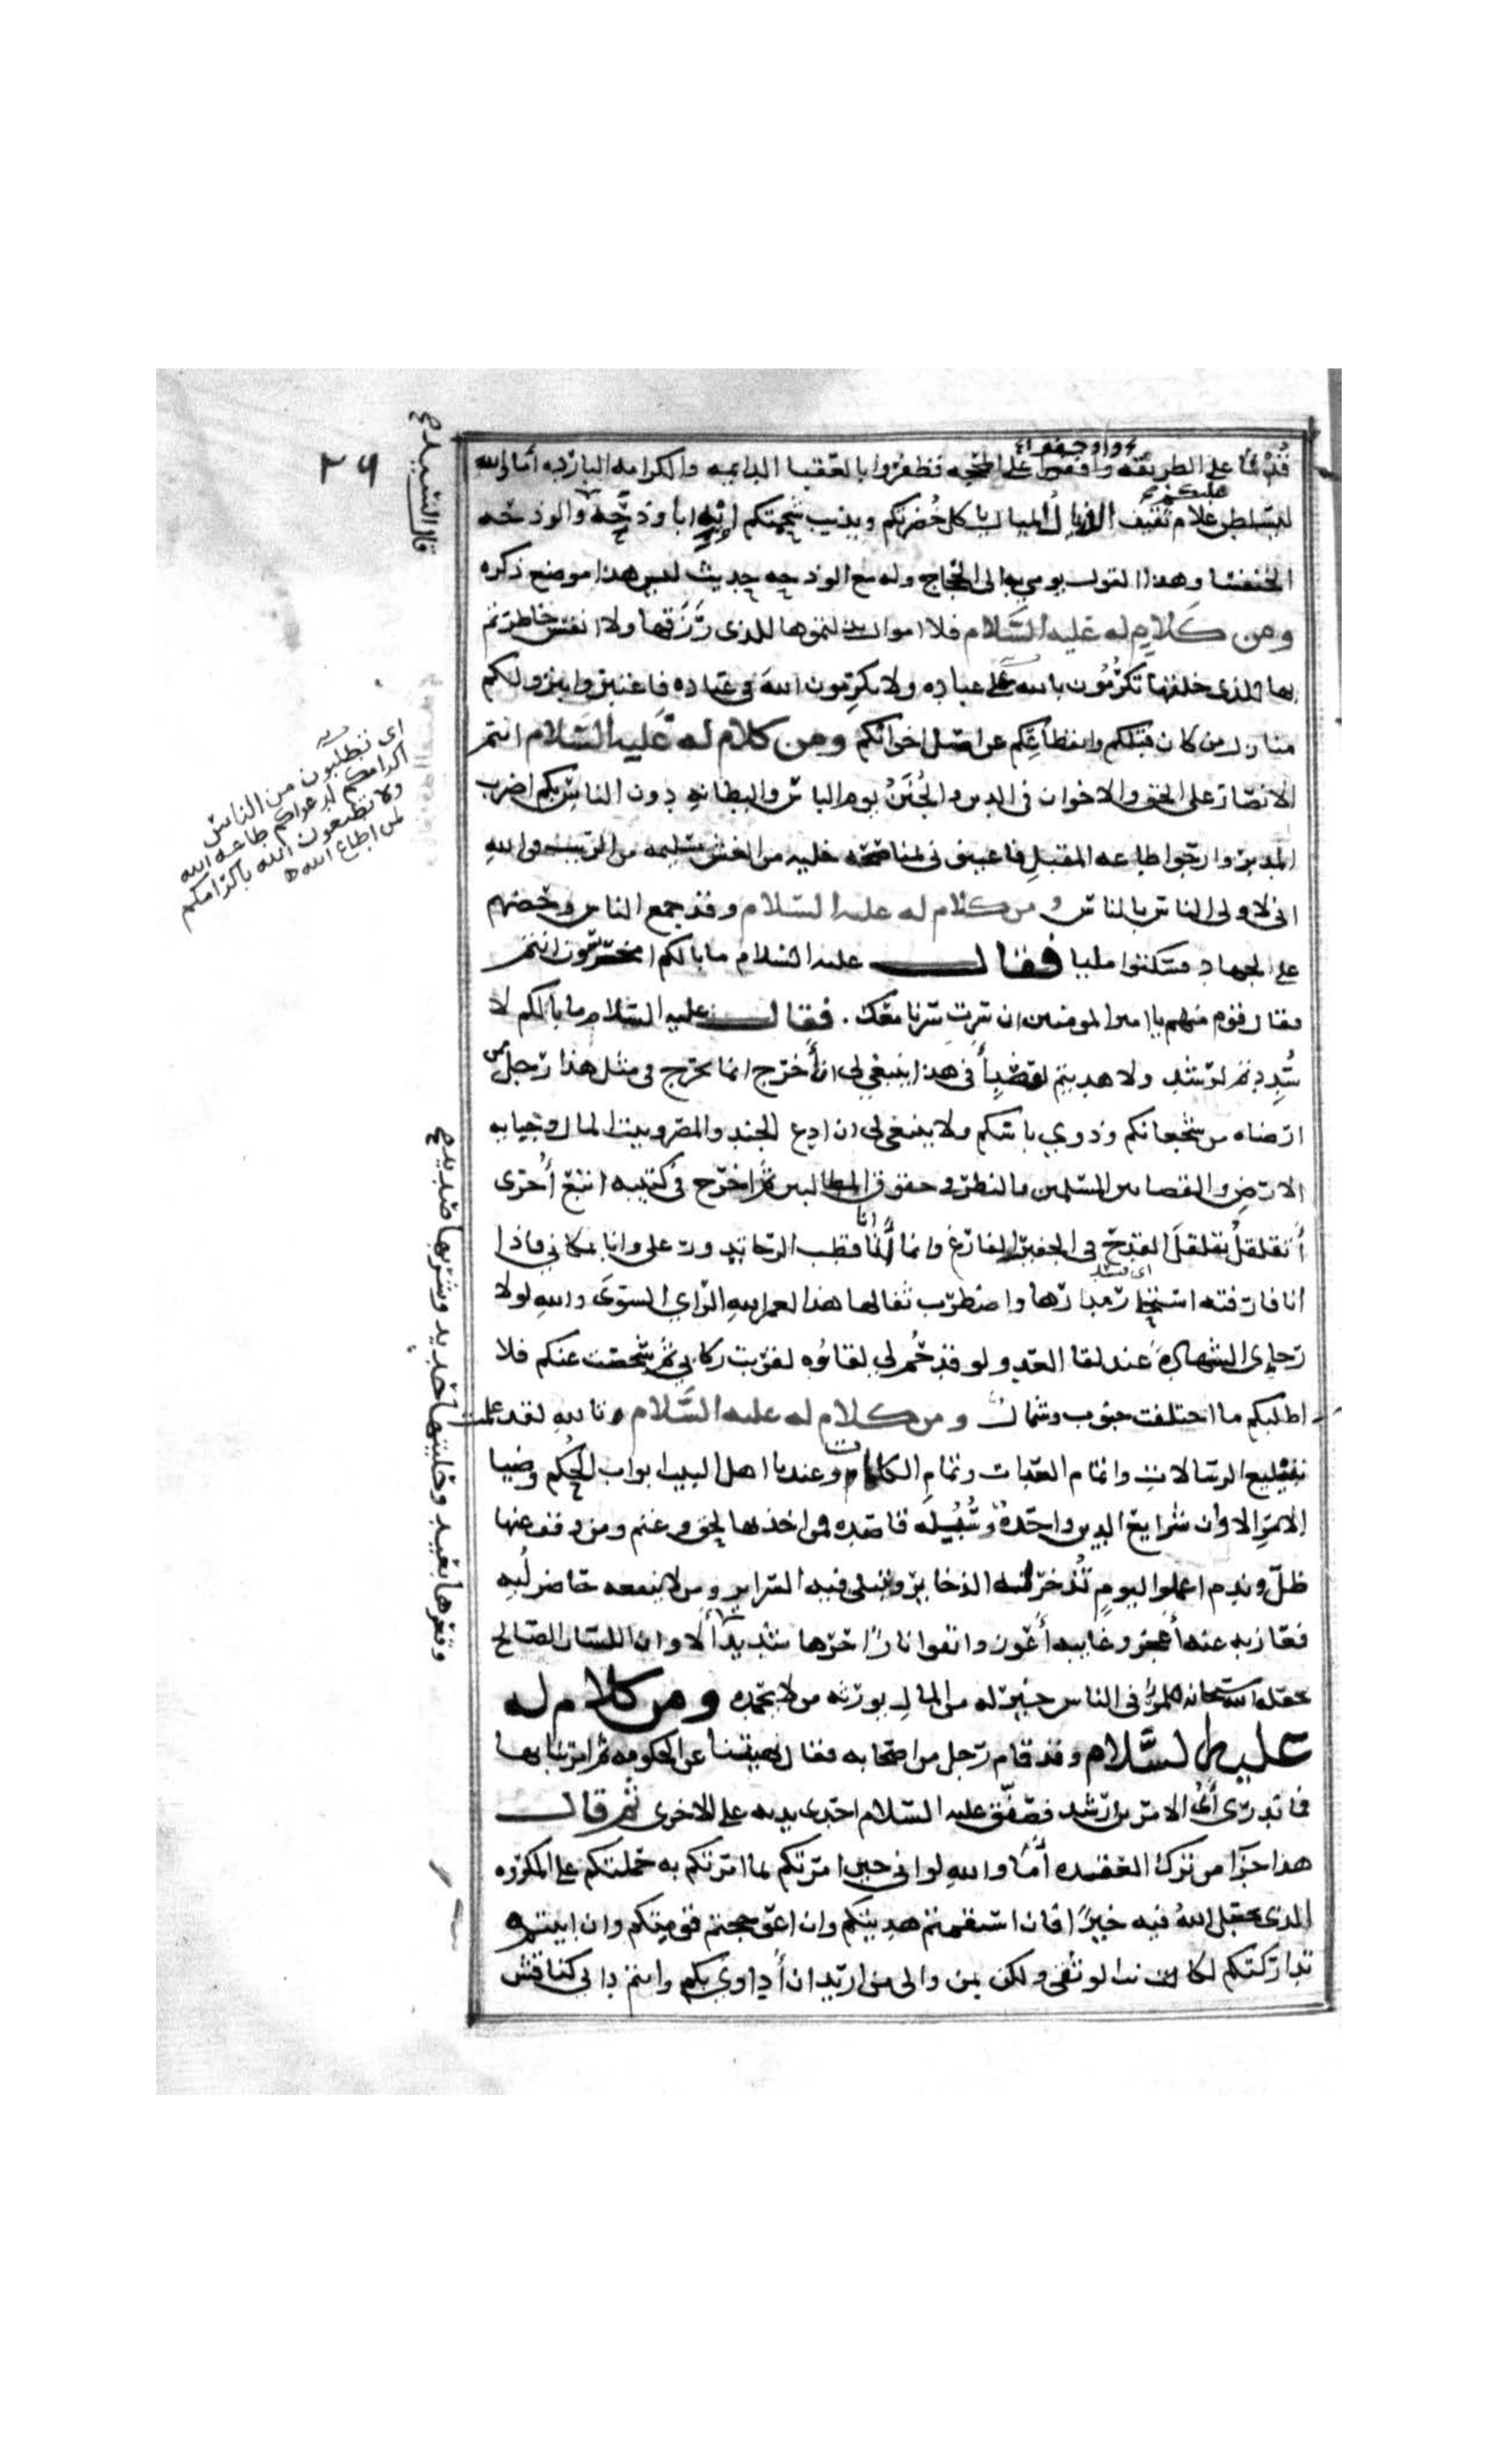 قدما على الطريقه واوجفوا على المحجه فظفروا بالعقبا الدايمه والكرامه البارده اما والله
ليسلطن عليكم غلام ثقيف الذيال الميال ياكل خضرتكم ويذيب شحمتكم ايه ابا وذحه والوذحه
الخنفسا وهذا القول يومي به الى الحجاج وله مع الوذحه حديث ليس هذا موضع ذكره
ومن كلام له عليه السلام فلا اموال بذلتموها للذى رزقها ولا انفس خاطرتم
بها للذى خلقها تكرمون بالله على عباده ولا تكرمون الله فى عباده فاعتبروا بنزولكم
منازل من كان قبلكم وانقطاعكم عن اصل اخوانكم ومن كلام له عليه السلام انتم
الانصار على الحق والاخوان فى الدين والجنن يوم الباس والبطانه دون الناس بكم اضرب
المدبر وارجوا طاعه المقبل فاعينونى بمناصحه خليه من الغش سليمه من الريب فوالله
انى لاولى الناس بالناس ومن كلام له عليه السلام وقد جمع الناس وحضهم
على الجهاد فسكتوا مليا فقال عليه السلام ما بالكم امخرسون انتم
فقال قوم منهم يا امير المومنين ان سرت سرنا معك . فقال عليه السلام ما بالكم لا
سددتم لرشد ولا هديتم لقصد أفى هذا ينبغى لى ان أخرج انما يخرج فى مثل هذا رجل ممن
ارضاه من شجعانكم وذوي باسكم ولا ينبغى لى ان ادع الجند والمصر وبيت المال وجبايه
الارض والقضا بين المسلمين والنظر فى حقوق المطالبين ثم اخرج فى كتيبه اتبع أخرى
أتقلقل تقلقل القدح فى الجفير الفارغ وانما أنا قطب الرحا تدور على وانا بمكانى فاذا
انا فارقته استحار مدارها واضطرب ثفالها هذا لعمر الله الراي السوى والله لولا
رجاى الشهاده عند لقا العدو لو قد حم لى لقاؤه لقربت ركابى ثم شخصت عنكم فلا
اطلبكم ما اختلفت جنوب وشمال ومن كلام له عليه السلام تالله لقد علمت
تبليغ الرسالات واتمام العدات وتمام الكلمات وعندنا اهل البيت ابواب الحكم وضيا
الامر الا وان شرايع الدين واحدة وسبله قاصده من اخذ بها لحق وغنم ومن وقف عنها
ضل وندم اعملوا ليوم تذخر له الذخاير وتبلى فيه السراير ومن لا ينفعه حاضر لبه
فعازبه عنه أعجز وغايبه أعوز واتقوا نارًا حرها شديد ألا وان اللسان الصالح
يجعله الله سبحانه للمرء فى الناس خير له من المال يورثه من لا يحمده ومن كلام له
عليه السلام وقد قام رجل من اصحابه فقال نهيتنا عن الحكومه ثم امرتنا بها
فما ندرى أى الامرين ارشد فصفق عليه السلام احدى يديه على الاخرى ثم قال
هذا جزا من ترك العقده أما والله لو انى حين امرتكم بما امرتكم به حملتكم على المكروه
الذى يجعل الله فيه خيرًا فان استقمتم هديتكم وان اعوججتم قومتكم وان ابيتم
تداركتكم لكانت الوثقى ولكن بمن والى من اريد ان أداوى بكم وانتم دائى كناقش
قال السيد
٢٦
اى تطلبون من الناس
اكرامكم لدعواكم طاعه الله
ولا تطيعون الله باكرامكم
لمن اطاع الله
وقعرها بعيد وحليتها حديد وشربها صديد